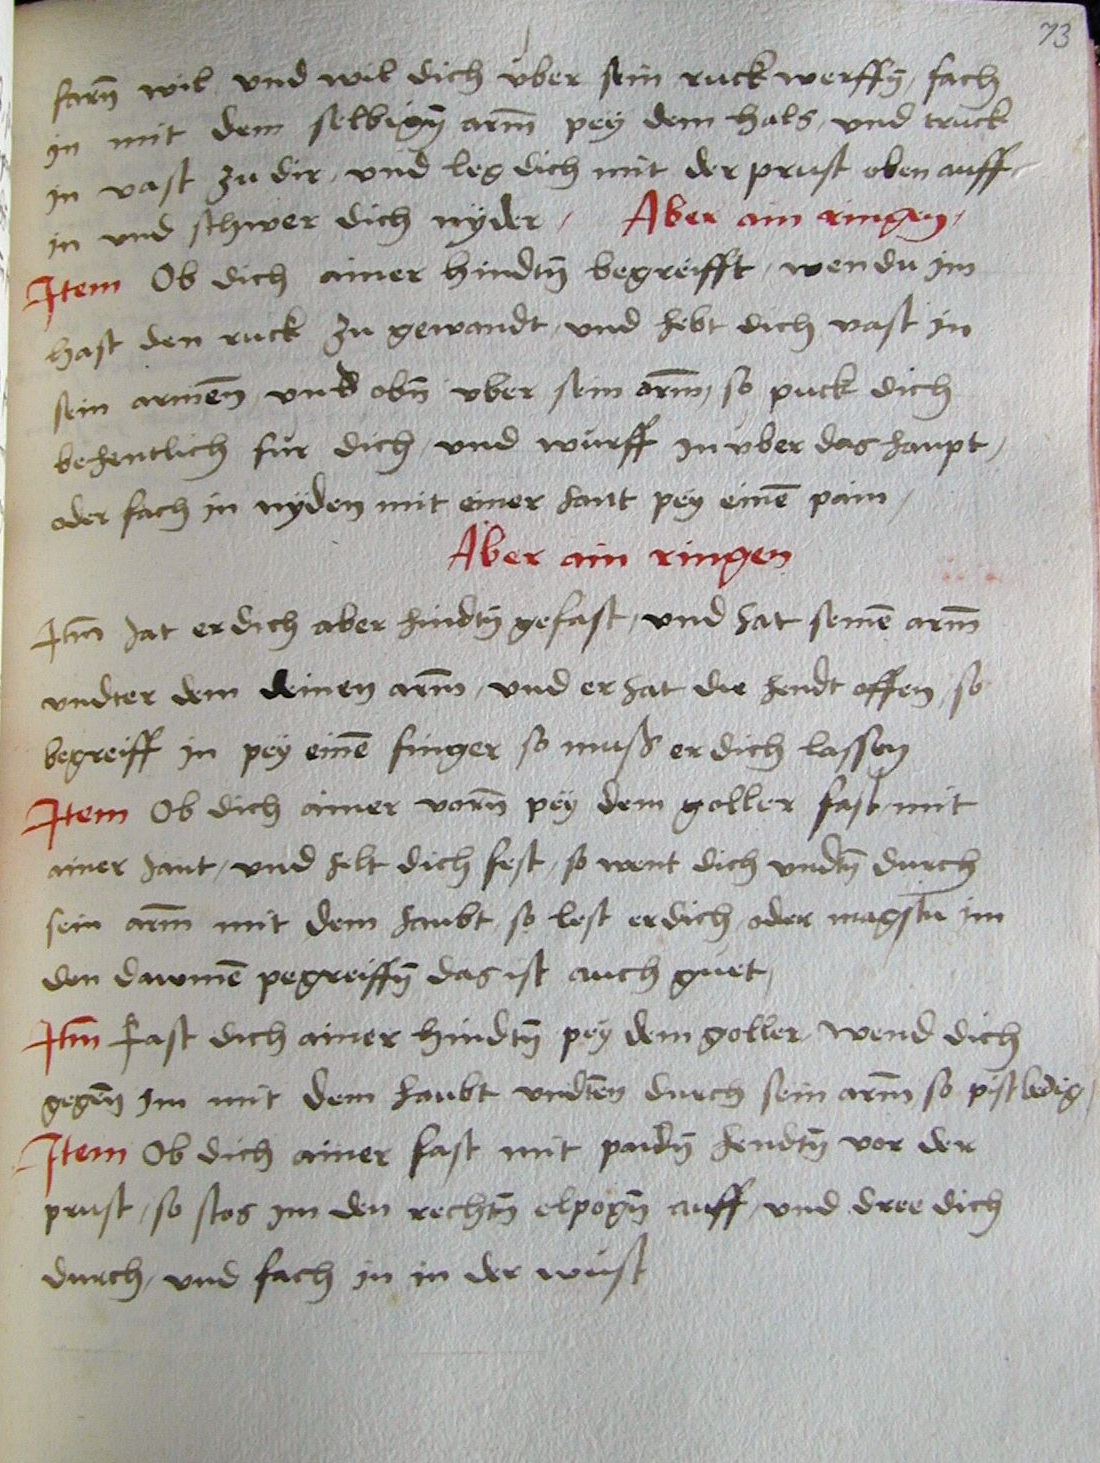 73
farn̄ wil und wil dich vber sein ruck werffn̄, fach
in mit dem selbign̄ arm̄ pey dem hals, und truck
in vast zu dir, und leg dich mit der prust oben auff,
in und schwer dich nyder, Aber ain ringen,
Item Ob dich ainer hindtn̄ begreifft, wen du im
hast den ruck zu gewandt, und hebt dich vast in
sein armen̄ und obn̄ vber sein arm̄, so puck dich
behentlich fur dich, und wurff in vber das haupt,
oder fach in nyden mit einer hant pey eine͂ pain,
Aber ain ringen
Itm̄ hat er dich aber hindtn̄ gefast, und hat seine͂ arm̄
undter dem deinen arm̄, und er hat die hendt offen, so
begreiff in pey eine͂ finger so muß er dich lassen
Item Ob dich ainer vorn̄ pey dem goller fast, mit
ainer hant, und helt dich fest, so went dich undtn̄ durch
sein arm̄ mit dem haubt, so lest er dich, oder magstu im
den daumen͂ pegreiffn̄ das ist auch guet,
Itm̄ Fast dich ainer hindtn̄ pey dem goller, Wend dich
gegen̄ im mit dem haubt undten̄ durch sein arm̄ so pist ledig,
Item Ob dich ainer fast mit paidn̄ hendtn̄ vor der
prust, so stos im den rechtn̄ elpogn̄ auff, und dree dich
durch, und fach in in der wust